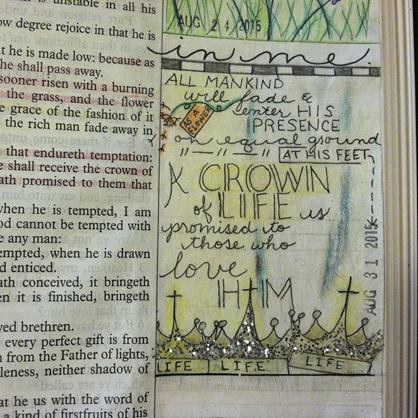 is unstable in all his
w degree rejoice in that he is
t he is made low: because as
he shall pass away.
sooner risen with a burning
the grass, and the flower
e grace of the fashion of it
the rich man fade away in
that endureth temptation:
e shall receive the crown of
ath promised to them that
when he is tempted, I am
od cannot be tempted with
e any man:
empted, when he is drawn
d enticed.
ath conceived, it bringeth
en it is finished, bringeth
ved brethren.
every perfect gift is from
n from the Father of lights,
leness, neither shadow of
at he us with the word of
a kind of firstfruits of his
AUG 24 2015
in me.
ALL MANKIND
will fade &
AS A FLOWER
enter HIS
PRESENCE
on equal ground
AT HIS FEET
A CROWN
of LIFE is
promised to
those who
love
HIM
AUG 31 2015
LIFE
LIFE
LIFE